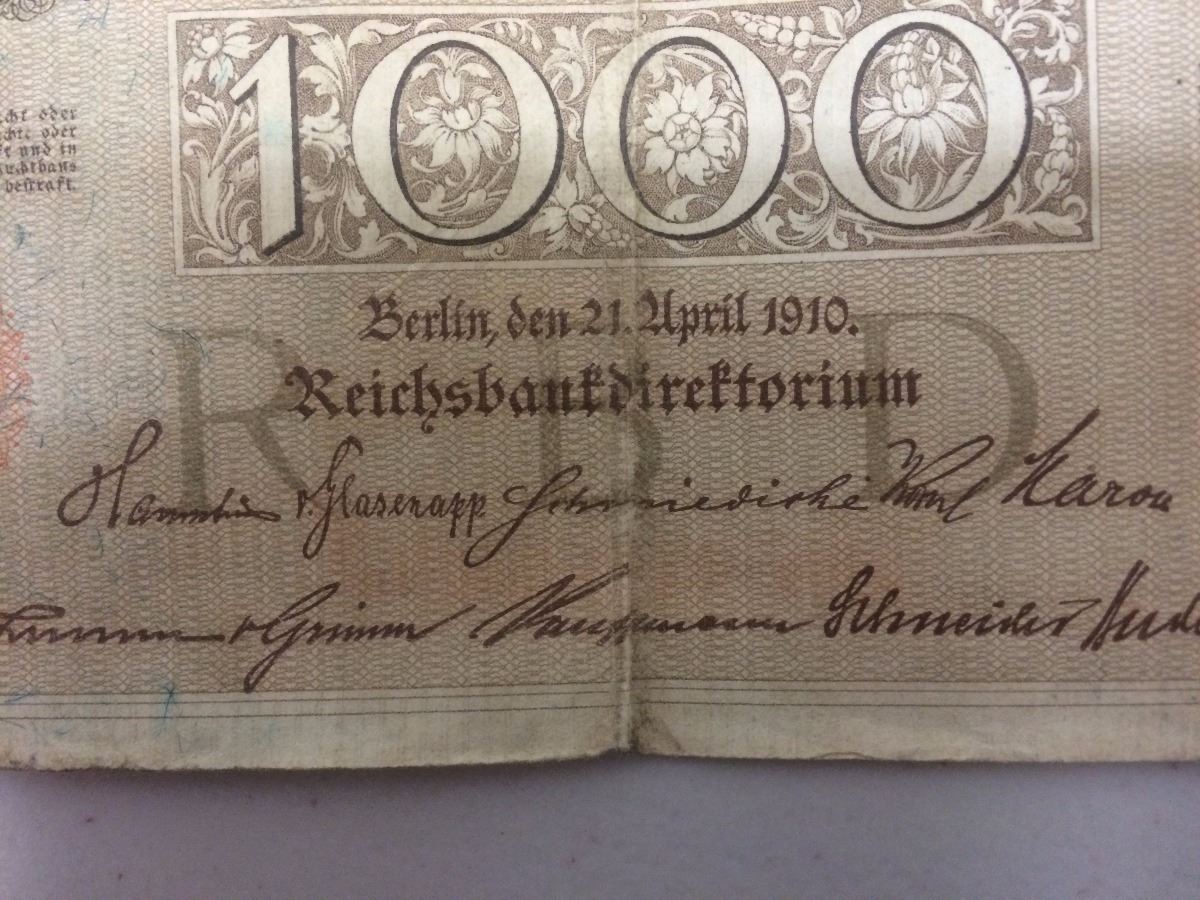 1000
cht oder
chte oder
und in
bestraft.
Berlin, den 21. April 1910.
Reichsbankdirektorium
R B D
v. Glasenapp Schmiedicke Korn Maron
v Grimm Kauffmann Schneider